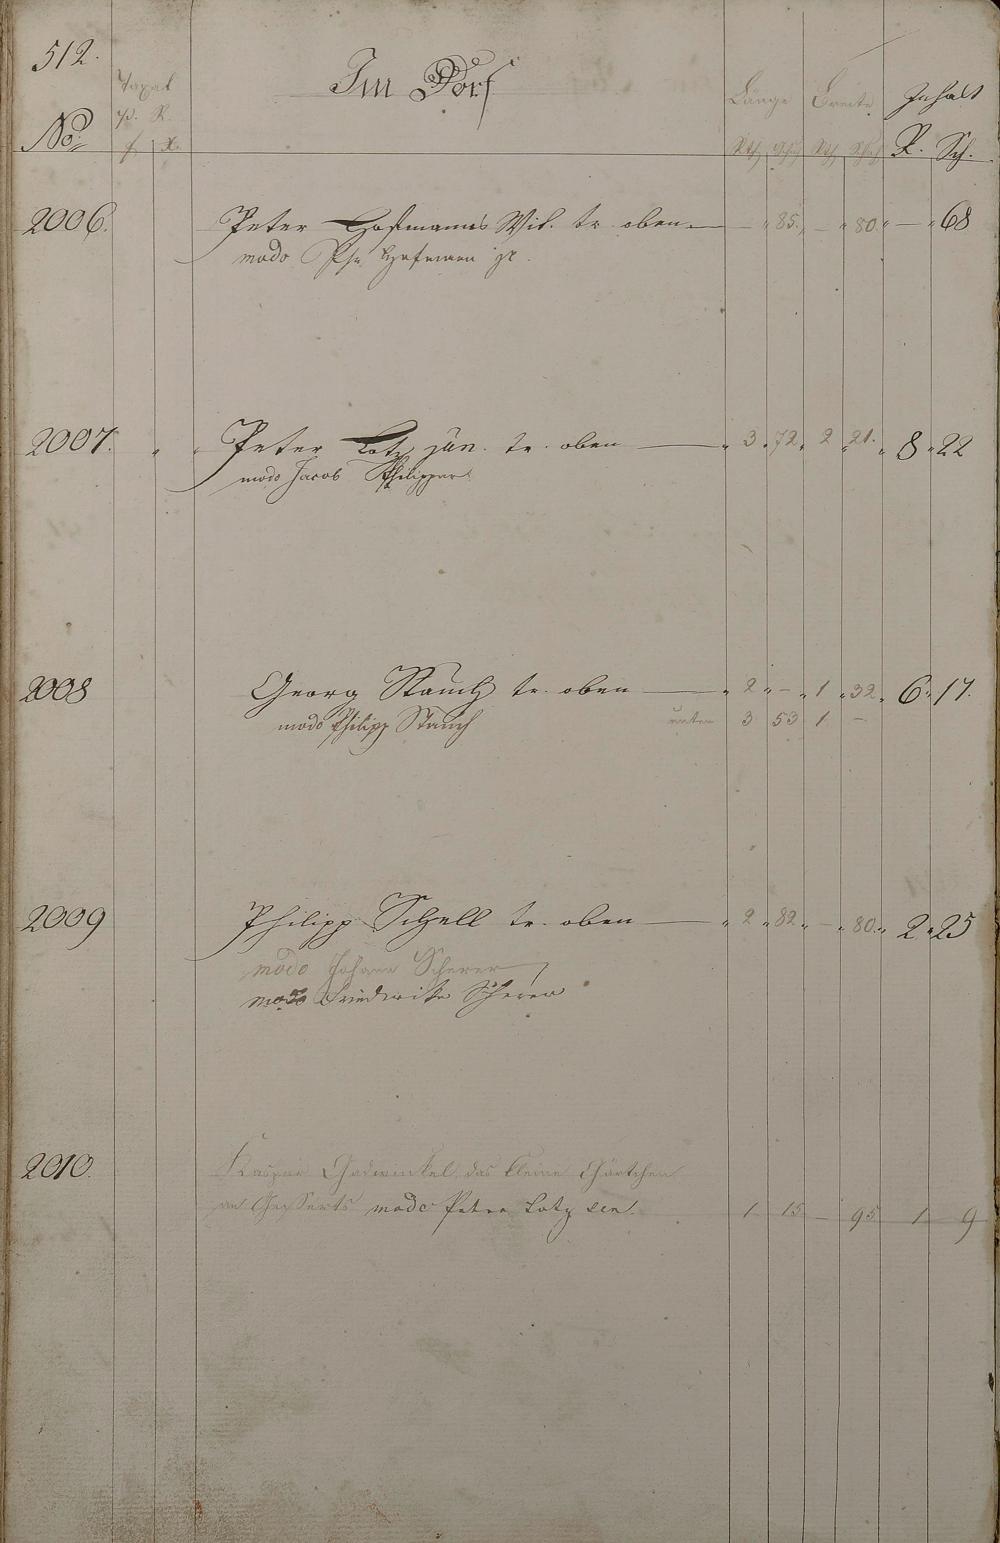 512.
Im Dorf
Taxat
p. R.
Länge Breite Inhalt
No. f x Rth Sch Rth Sch R. Sch.
2006. Peter Hofmanns Wit. tr. oben — — " 85. — " 80. " — " 68
modo Phil. Hofmann
2007. " Peter Lotz jun. tr. oben — " 3 " 72 " 2 " 21. " 8 " 22
modo Jacob Philipper
2008 Georg Stauch tr. oben — " 2 " — " 1 " 32 " 6 " 17.
modo Philipp Stauch unten 3 53 1 —
2009 Philipp Schell tr. oben — " 2 " 82 " — " 80. " 2 " 25
modo Johann Scherer
modo Friederike Scherer
2010. Kaspar Gadwinkel das kleine Gärtchen
an modo Peter Lotz sen. 1 15 — 95 1 9